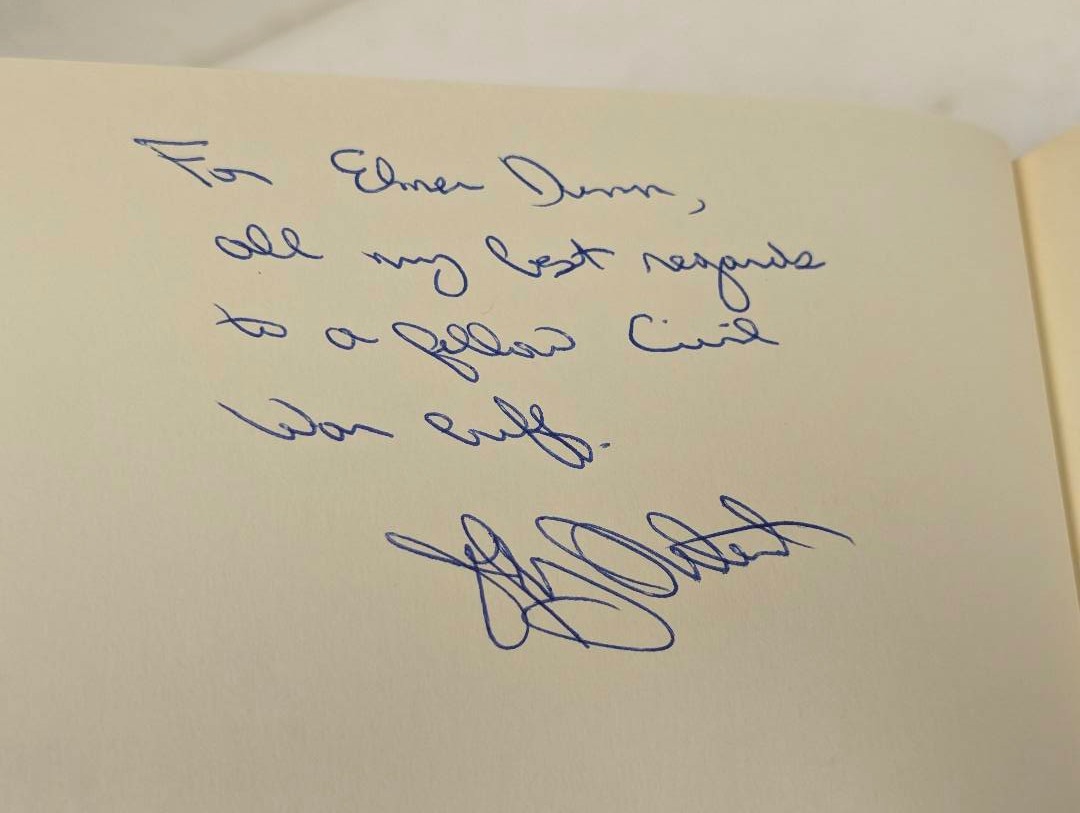 For Elmer Dunn,
all my best regards
to a fellow Civil
War buff.